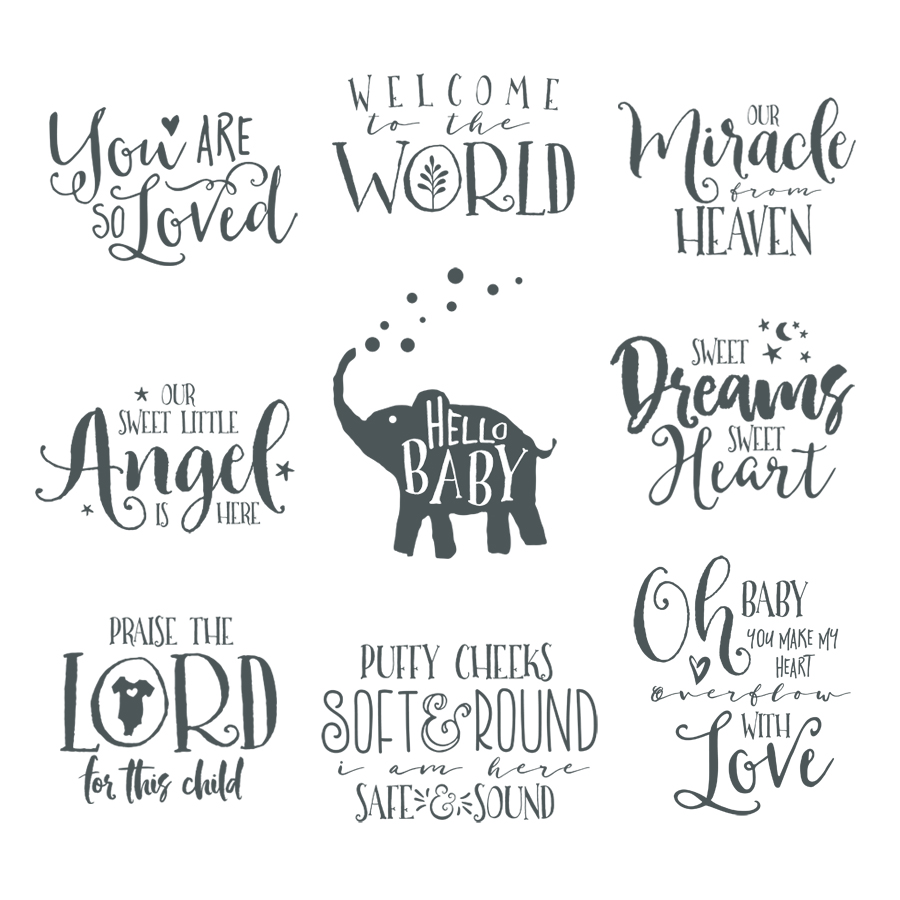 You ARE
SO Loved
WELCOME
to the
WORLD
OUR
Miracle
from
HEAVEN
OUR
SWEET LITTLE
Angel
IS HERE
HELLO
BABY
SWEET
Dreams
SWEET
Heart
PRAISE THE
LORD
for this child
PUFFY CHEEKS
SOFT & ROUND
i am here
SAFE & SOUND
Oh BABY
YOU MAKE MY
HEART
overflow
WITH
Love